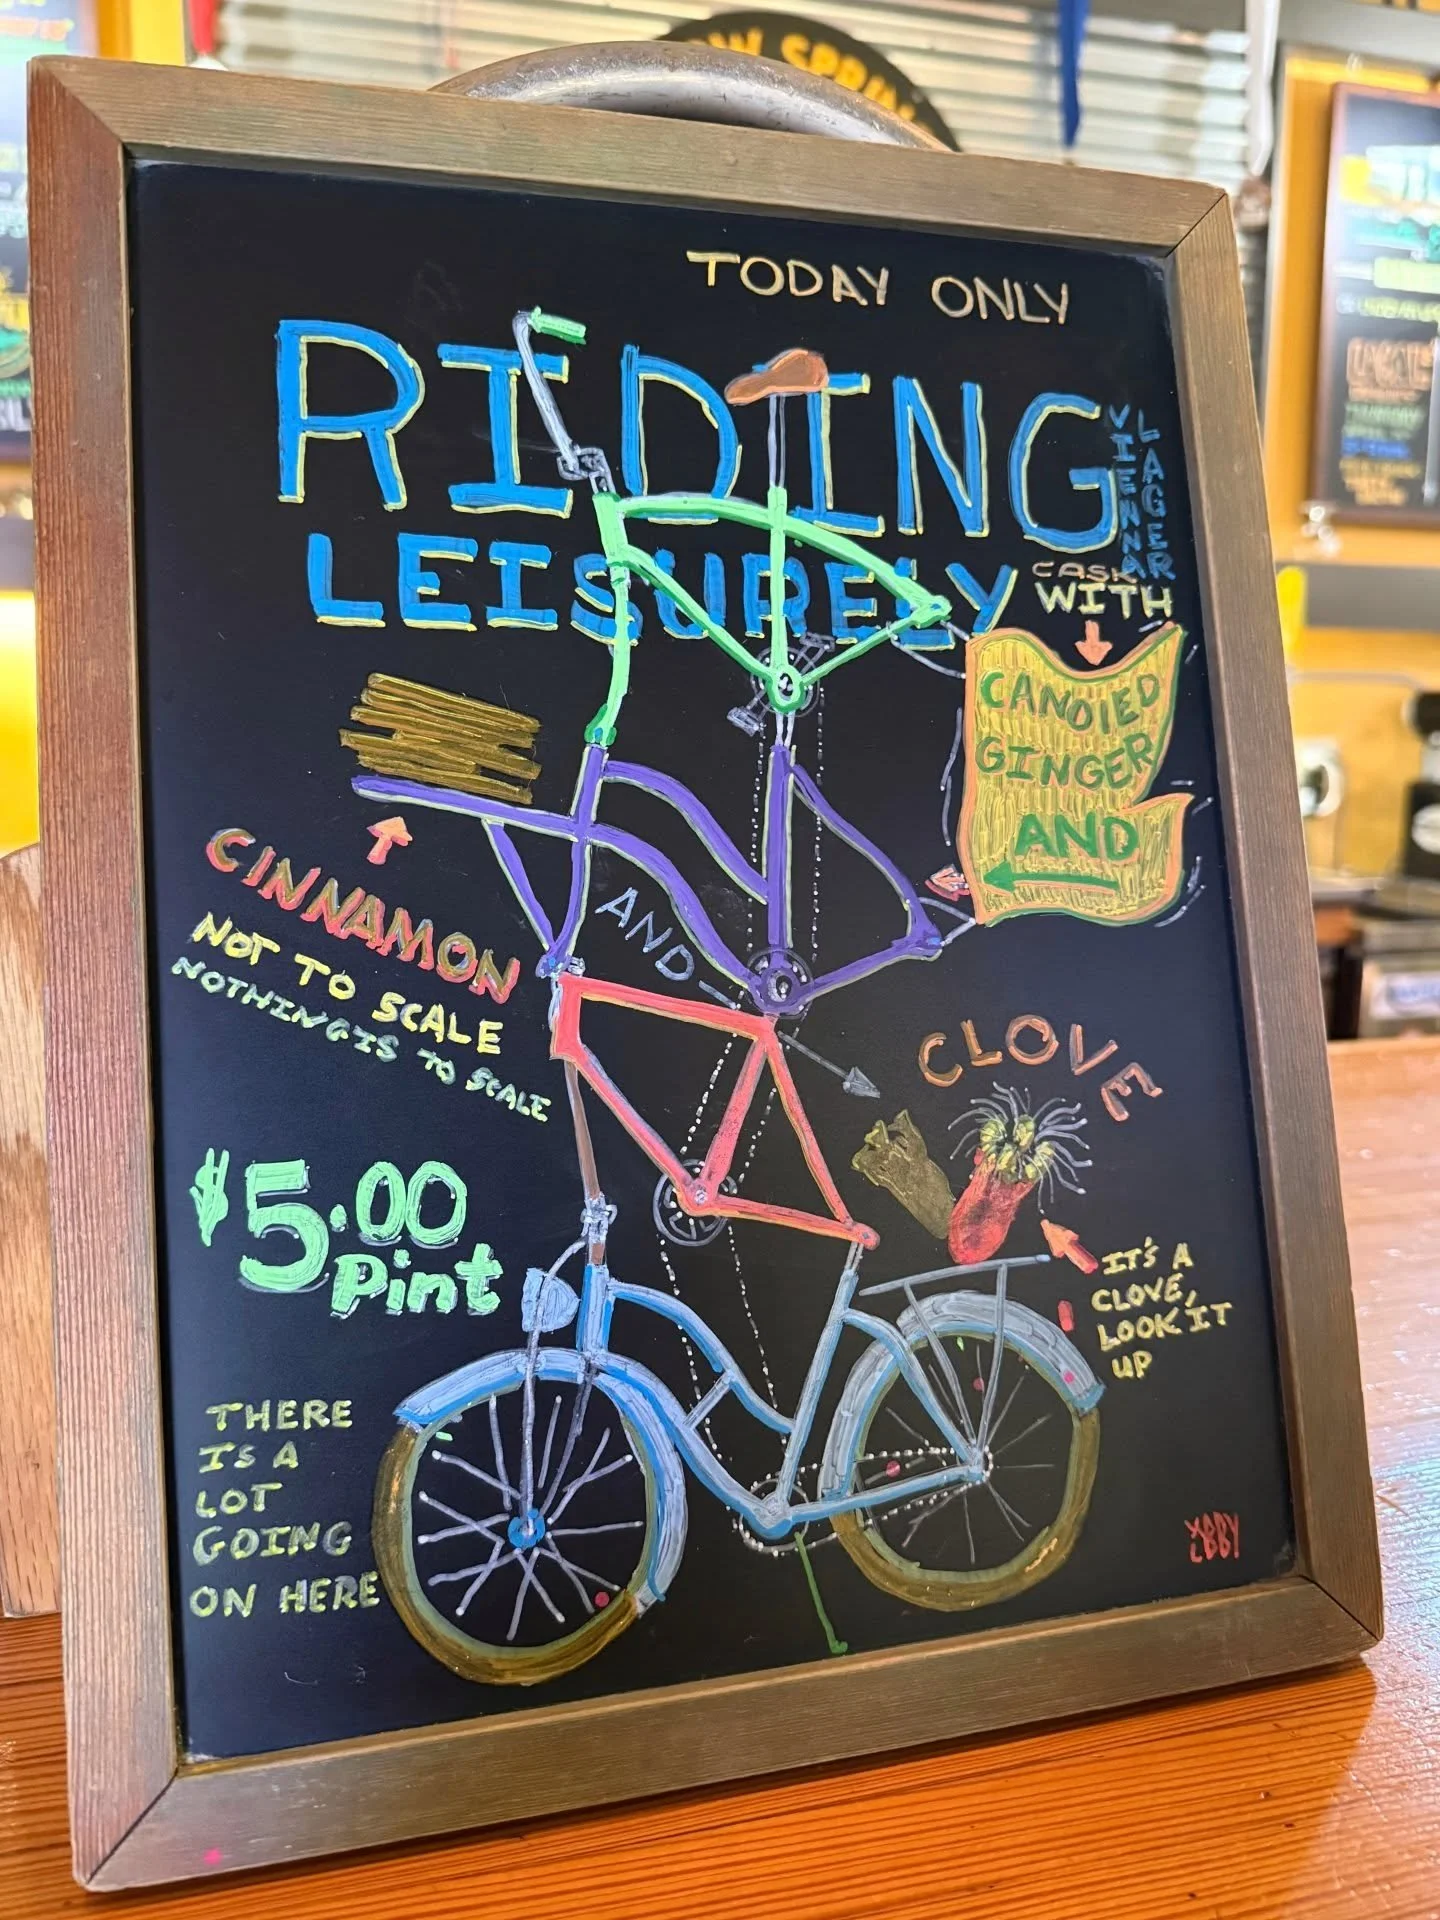 OW SPRIN
TODAY ONLY
RIDING
LEISURELY
VIENNA
LAGER
CASK
WITH
CANDIED
GINGER
AND
CINNAMON
NOT TO SCALE
NOTHING IS TO SCALE
AND
CLOVE
$5.00
Pint
IT'S A
CLOVE,
LOOK IT
UP
THERE
IS A
LOT
GOING
ON HERE